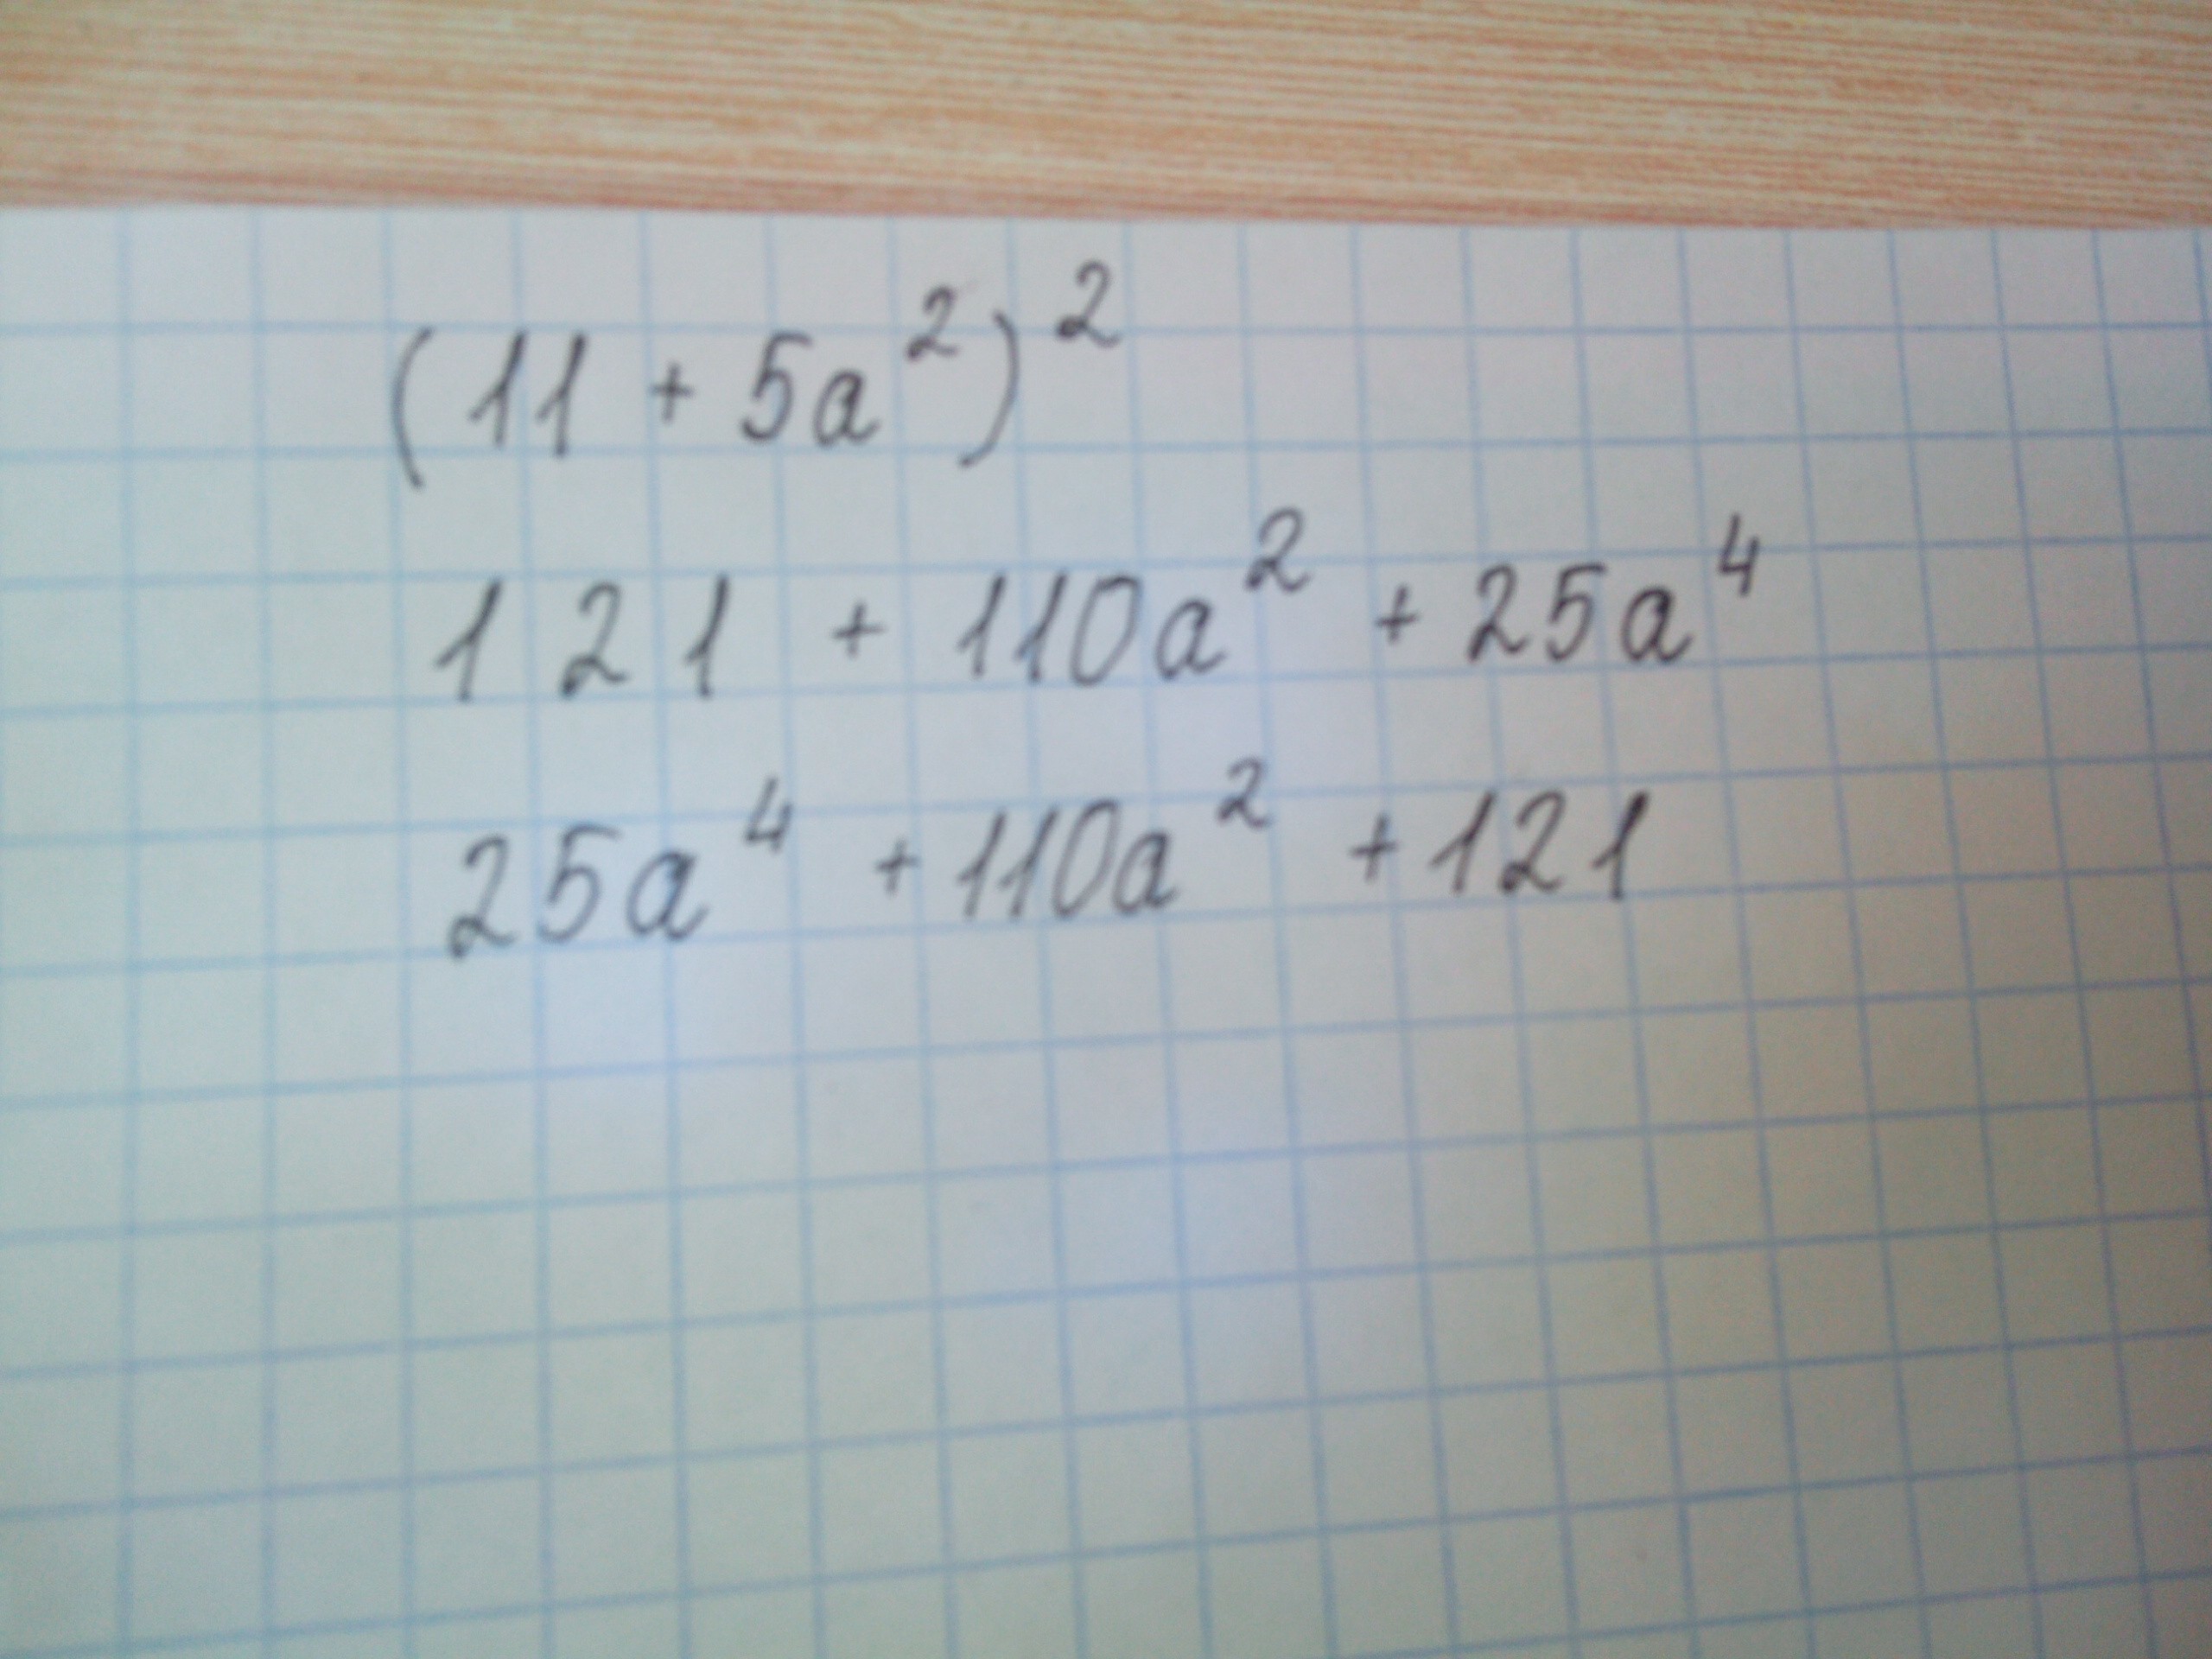 (11 + 5a²)²
121 + 110a² + 25a⁴
25a⁴ + 110a² + 121